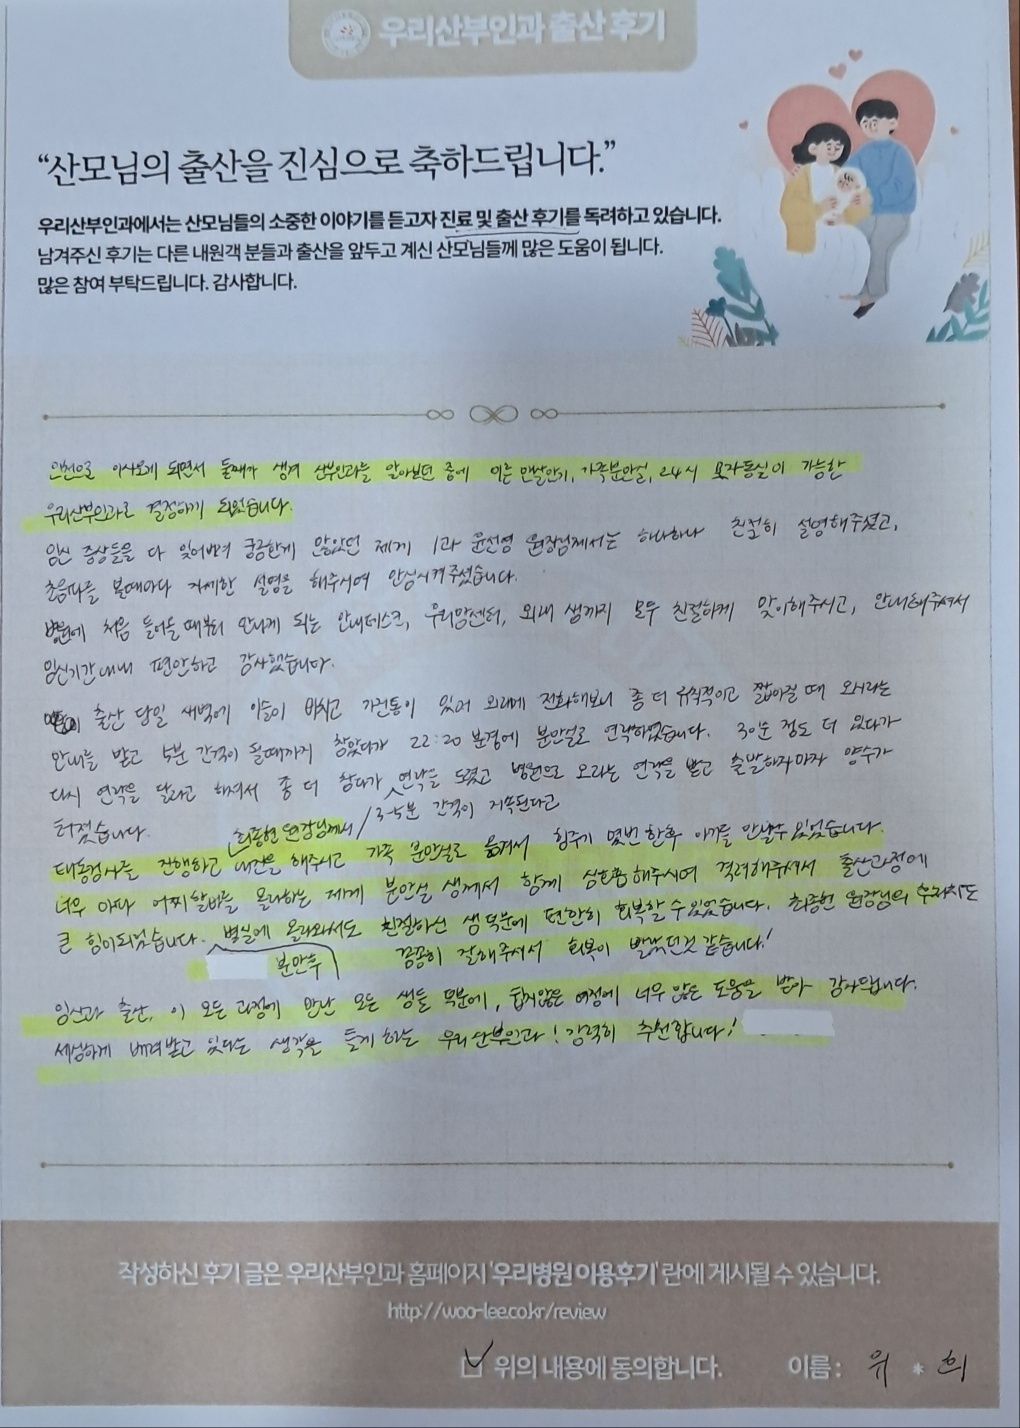 우리산부인과 출산 후기
“산모님의 출산을 진심으로 축하드립니다.”
우리산부인과에서는 산모님들의 소중한 이야기를 듣고자 진료 및 출산 후기를 독려하고 있습니다.
남겨주신 후기는 다른 내원객 분들과 출산을 앞두고 계신 산모님들께 많은 도움이 됩니다.
많은 참여 부탁드립니다. 감사합니다.
인천으로 이사오게 되면서 둘째가 생겨 산부인과를 알아보던 중에 이른 맨살안기, 가족분만실, 24시 모자동실이 가능한
우리산부인과로 결정하게 되었습니다.
임신 증상들을 다 잊어버려 궁금한게 많았던 제게 1과 윤선영 원장님께서는 하나하나 친절히 설명해주셨고,
초음파를 볼때마다 자세한 설명을 해주시며 안심시켜주셨습니다.
병원에 처음 들어올때부터 만나게 되는 안내데스크, 우리맘센터, 외래 쌤까지 모두 친절하게 맞이해주시고, 안내해주셔서
임신기간내내 편안하고 감사했습니다.
출산 당일 새벽에 이슬이 비치고 가진통이 있어 외래에 전화해보니 좀 더 규칙적이고 짧아질 때 오시라는
안내를 받고 5분 간격이 될때까지 참았다가 22:20분경에 분만실로 연락하였습니다. 30분 정도 더 있다가
다시 연락을 달라고 하셔서 좀 더 참다가 연락을 드렸고 병원으로 오라는 연락을 받고 출발하자마자 양수가
터졌습니다. 최종현 원장님께서 / 3-5분 간격이 지속된다고
태동검사를 진행하고 내진을 해주시고 가족 분만실로 옮겨서 힘주기 몇번 한후 아기를 만날수 있었습니다.
너무 아파 어찌할바를 몰라하는 제게 분만실 쌤께서 함께 심호흡 해주시며 격려해주셔서 출산과정에
큰 힘이되었습니다. 병실에 올라와서도 친절하신 쌤 덕분에 편안히 회복할 수 있었습니다. 최종현 원장님의 후처치도
분만후 꼼꼼히 잘해주셔서 회복이 빨랐던것 같습니다!
임신과 출산, 이 모든 과정에 만난 모든 쌤들 덕분에, 쉽지않은 여정에 너무 많은 도움을 받아 감사드립니다.
세심하게 배려받고 있다는 생각을 들게 하는 우리산부인과! 강력히 추천합니다!
작성하신 후기 글은 우리산부인과 홈페이지 '우리병원 이용후기' 란에 게시될 수 있습니다.
http://woo-lee.co.kr/review
위의 내용에 동의합니다. 이름 : 위 * 희